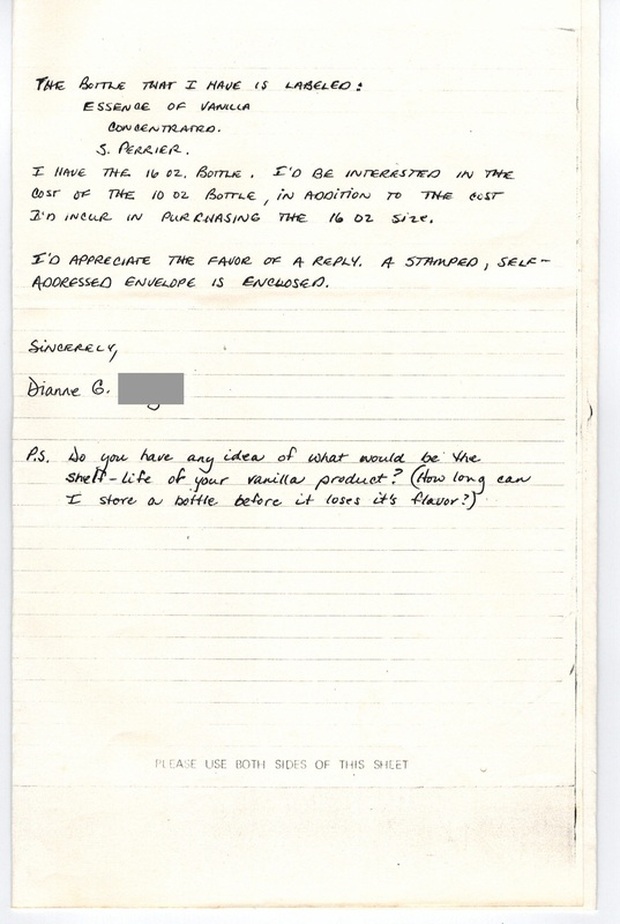 THE BOTTLE THAT I HAVE IS LABELED:
ESSENCE OF VANILLA
CONCENTRATED.
S. PERRIER.
I HAVE THE 16 OZ. BOTTLE. I'D BE INTERESTED IN THE
COST OF THE 10 OZ BOTTLE, IN ADDITION TO THE COST
I'D INCUR IN PURCHASING THE 16 OZ SIZE.
I'D APPRECIATE THE FAVOR OF A REPLY. A STAMPED, SELF-
ADDRESSED ENVELOPE IS ENCLOSED.
SINCERELY,
Dianne G.
P.S. Do you have any idea of what would be the
shelf-life of your vanilla product? (How long can
I store a bottle before it loses it's flavor?)
PLEASE USE BOTH SIDES OF THIS SHEET